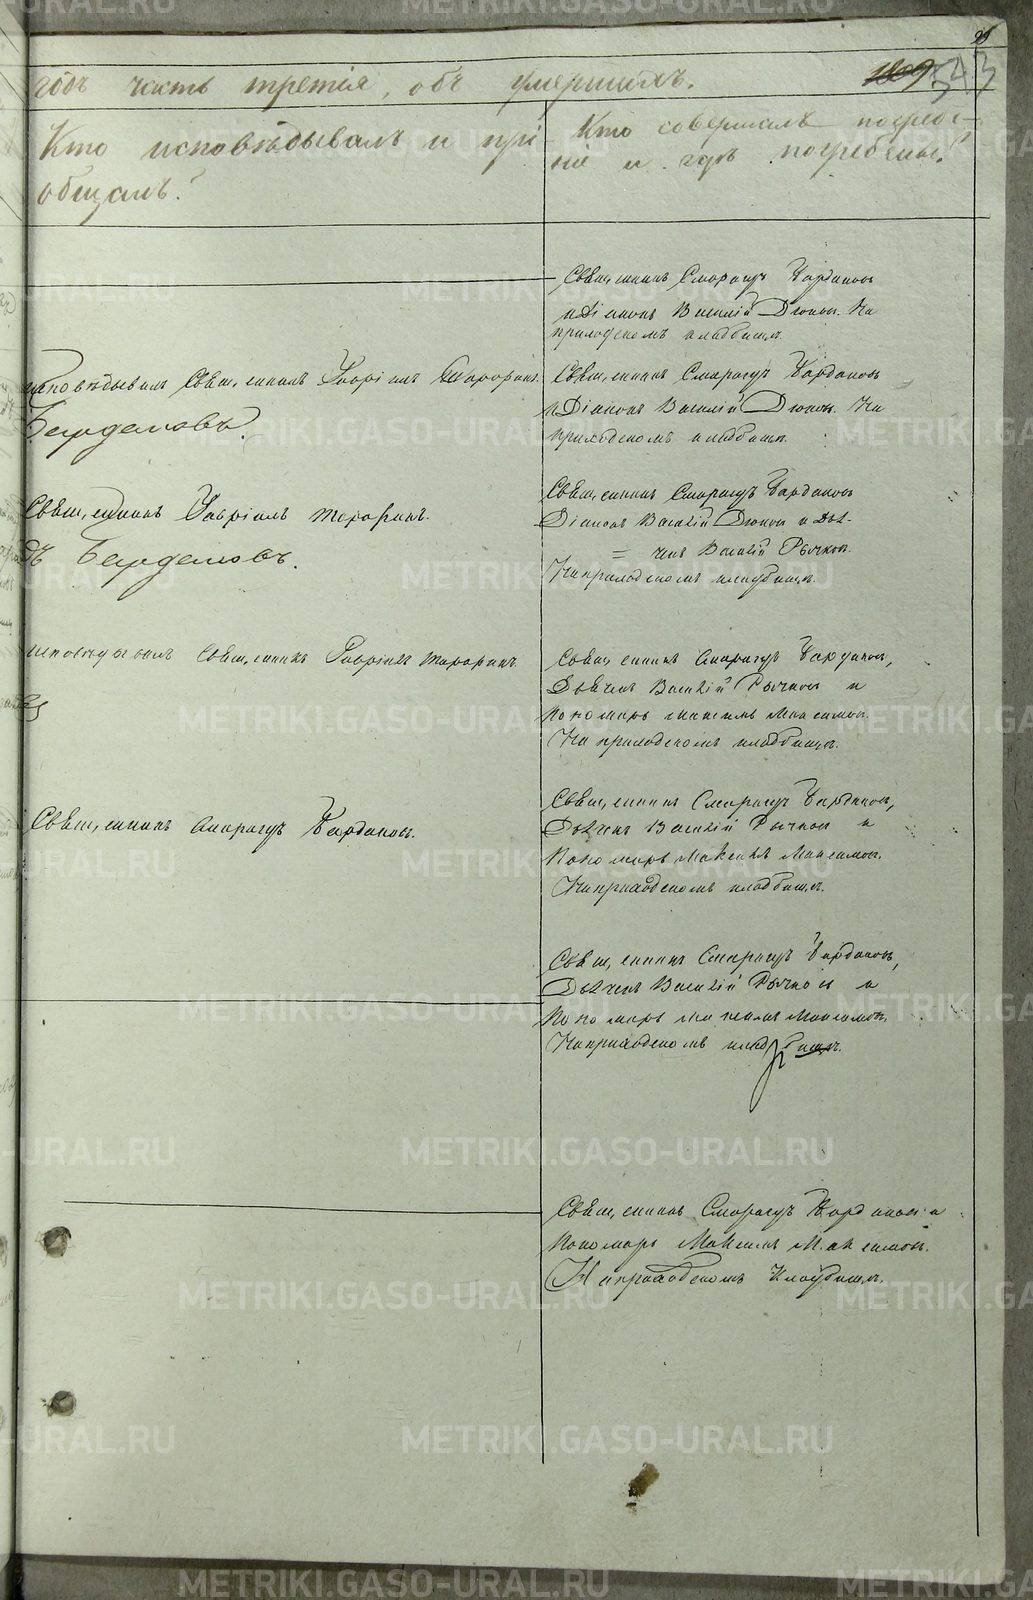 годъ часть третія, объ умершихъ.
543
Кто исповѣдывалъ и прі
общалъ?
Кто совершалъ погребе-
ніе и гдѣ погребены?
Свѣщенникъ Смарагдъ Варданов
и Діаконъ Василій Дюков. На
приходскомъ кладбищѣ.
исповѣдывалъ Свѣщ,енникъ Гавріилъ
Бердемовъ.
Свѣщ,енникъ Смарагдъ Вардановъ
и Діаконъ Василій Дюков. На
приходскомъ кладбищѣ.
Свѣщ,енникъ Гавріилъ
Бердемовъ.
Свѣщ,енникъ Смарагдъ Варданов
Діаконъ Василій Дюков и Дьѣ-
= чекъ Василій Рычков.
На приходскомъ кладбищѣ.
исповѣдывалъ Свѣщ,енникъ Гавріилъ
Свѣщ,енникъ Смарагдъ Варданов,
Дьѣчекъ Василій Рычков и
Пономарь Максимъ Максимов.
На приходскомъ кладбищѣ.
Свѣщ,енникъ Смарагдъ Варданов.
Свѣщ,енникъ Смарагдъ Варданов,
Дьѣчекъ Василій Рычков и
Пономарь Максимъ Максимов.
На приходскомъ кладбищѣ.
Свѣщ,енникъ Смарагдъ Варданов,
Дьѣчекъ Василій Рычков и
Пономарь Максимъ Максимов.
На приходскомъ кладбищѣ.
Свѣщ,енникъ Смарагдъ Варданов и
Пономарь Максимъ Максимов.
На приходскомъ кладбищѣ.
METRIKI.GASO-URAL.RU